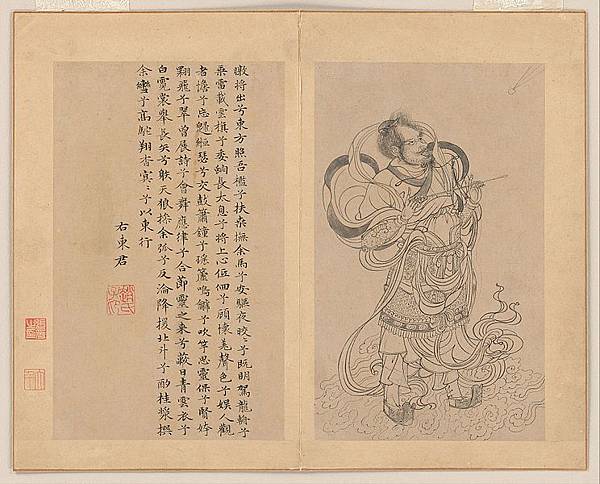 暾將出兮東方照吾檻兮扶桑撫余馬兮安驅夜皎〻兮既明駕龍輈兮
乘雷載雲旗兮委蛇長太息兮將上心低佪兮顧懷羌聲色兮娛人觀
者憺兮忘歸緪瑟兮交鼓簫鐘兮瑤簴鳴篪兮吹竽思靈保兮賢姱
翾飛兮翠曾展詩兮會舞應律兮合節靈之來兮蔽日青雲衣兮
白霓裳舉長矢兮射天狼操余弧兮反淪降援北斗兮酌桂漿撰
余轡兮高駝翔杳冥〻兮以東行
右東君